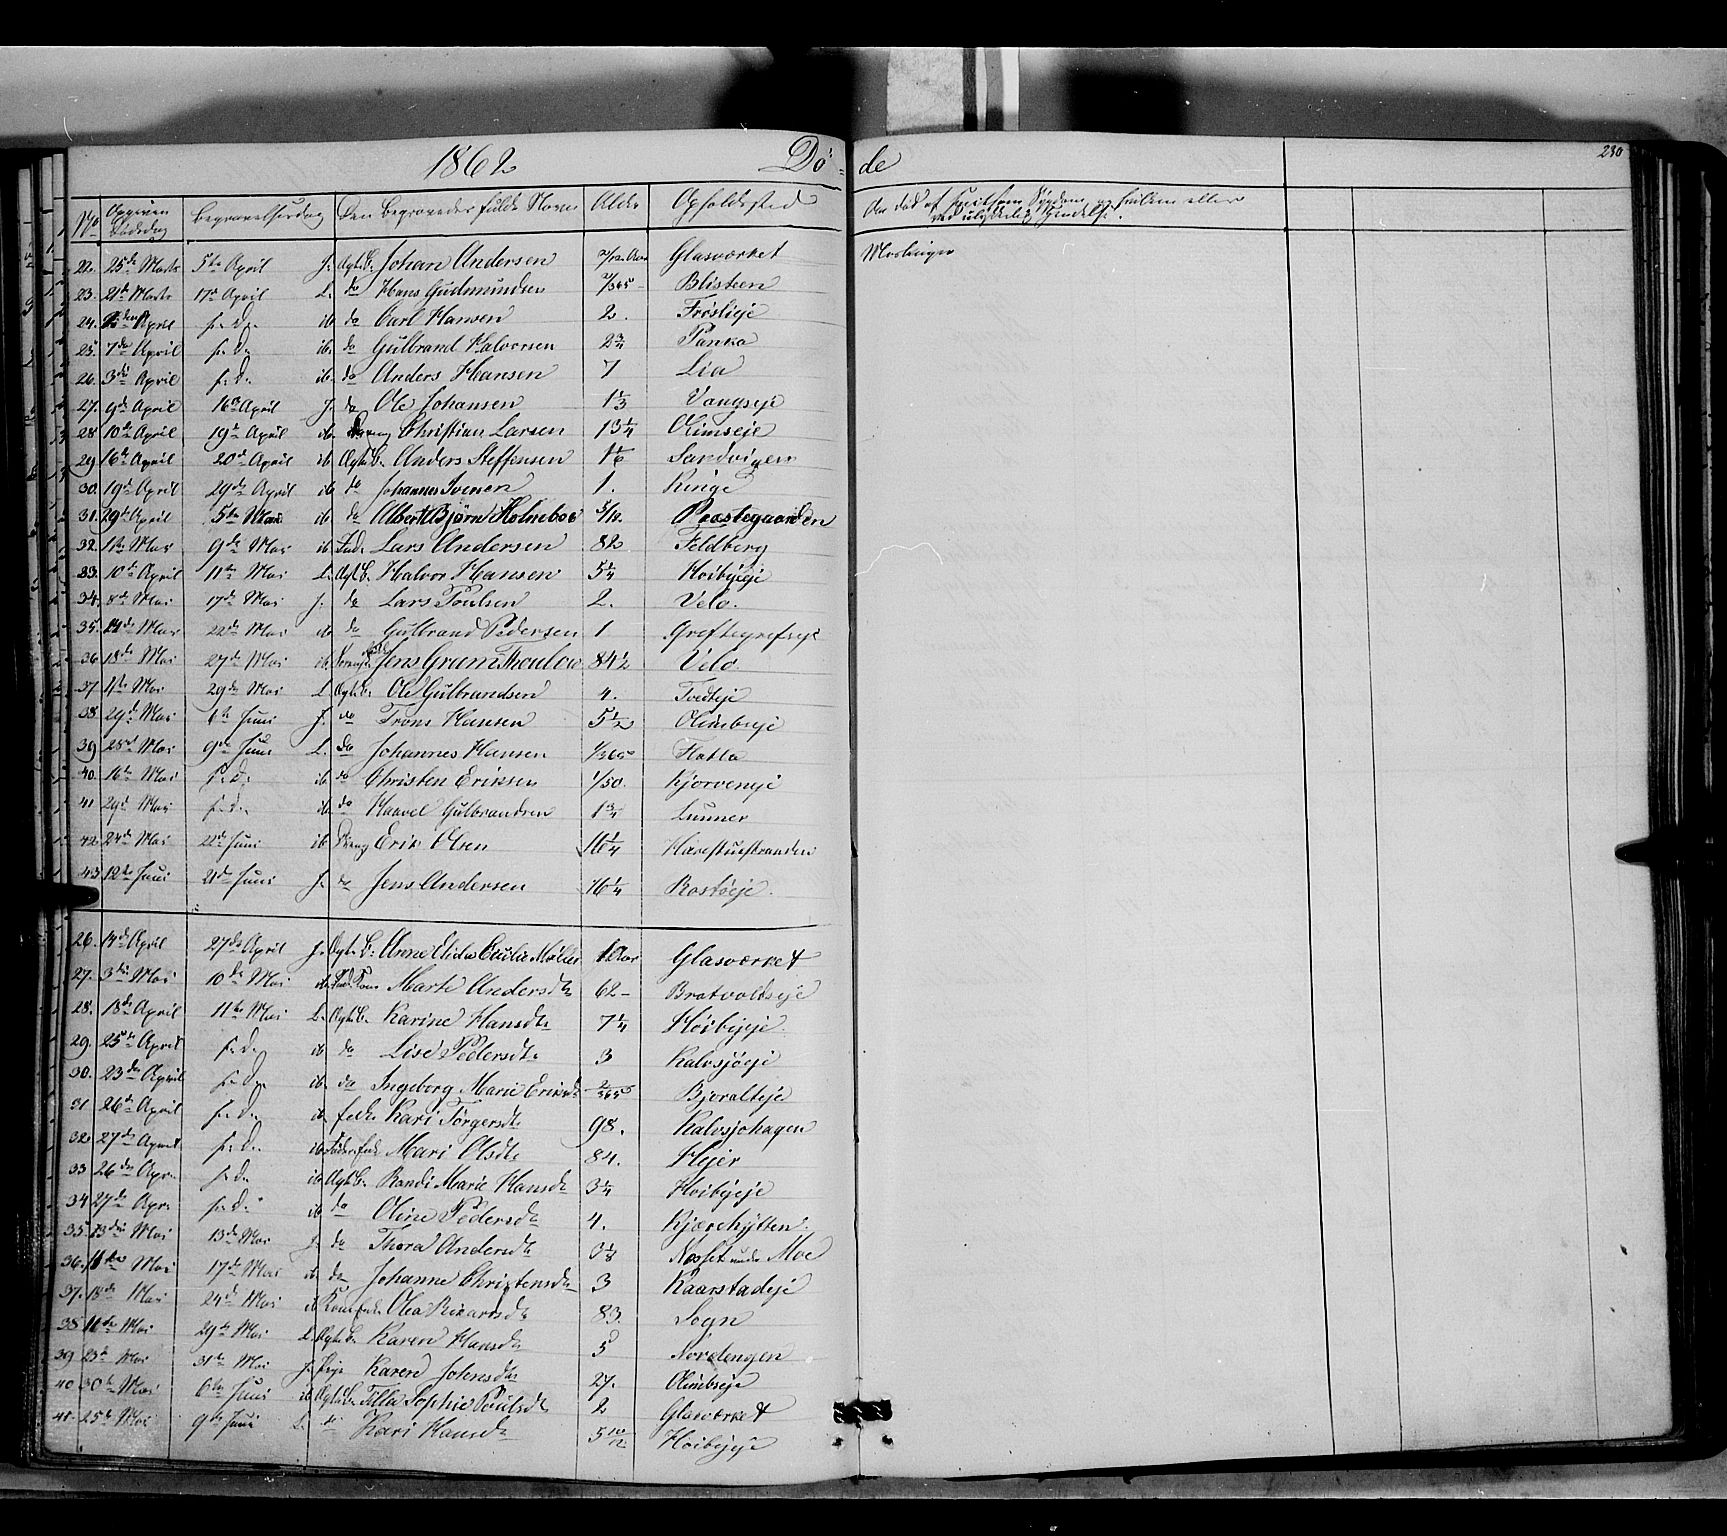 1862 Dö- de 230
No Opgiven Dødsdag Begravelsesdag Den Begravedes fulde Navn Alder Opholdssted Om død af smitsom Sygdom, og hvilken eller ved ulykkelig Hændelse.
22. 25de Marts 5te April J. Ægte B. Johan Andersen Aar Glasværket Meslinger
23. 21de Marts 17de April L. do Hans Gudmundsen 2/365 Blisteen
24. April s. D. ib do Carl Hansen 2. Frøslieje
25. 7de April s. D. ib. do Gulbrand Halvorsen 2 3/4 Panka
26. 3die April s. D. ib. do Anders Hansen 7 Lia
27. 9de April 16de April J. do Ole Johansen 1 1/3 Vangseje
28 10de April 19de April ib. Dreng Christian Larsen 13 1/4 Olimseje
29 16de April 20de April ib Ægte B. Anders Steffensen 1 1/6 Sandvigen
30. 19de April 29de April ib do Johannes Ivenen 1. Ringe
31. 29de April 5te Mai ib do Albert Björn Holmeboe 5/12. Præstegaarden
32. 1ste Mai 9de Mai ib Lars Andersen 82 Feldberg
33. 10de April 11te Mai L. Ægte B. Halvor Hansen 5 1/4 Høibyeje
34. 8de Mai 17de Mai J. do Lars Poulsen 2. Velo.
35. 14de Mai 22de Mai ib do Gulbrand Pedersen 1 Greftegrefseje
36 18de Mai 27de Mai ib Jens Gram Thoulow 84 1/2 Velo.
37 4de Mai 29de Mai L Ægte B. Ole Gulbrandsen 4. Tvedteje
38. 29de Mai 6te Juni J. do Trons Hansen 5 1/2 Olimbseje
39 28de Mai 9de Juni L. do Johannes Hansen 1/365 Flatla
40. 16de Mai s. D. ib do Christen Eriksen 1/50. Kjorveneje
41 29de Mai s. D. ib do Haavel Gulbrandsen 1 3/4 Lunner
42. 24de Mai 22de Juni ib Dreng Erik Olsen 16 1/4 Harestuestranden
43 12te Juni 21de Juni J. do Jens Andersen 16 1/4 Rostøeje.
26. April 27de April J. Ægte B. Anne Elide Cecilie Møller 1 Aar Glasværket
27. 3die Mai 10de Mai ib Marte Andersdtr 62 - Bratvoldseje
28. 18de April 11te Mai L. Ægte B. Karine Hansdtr 7 1/4 Høibyeje.
29. 25de April s. D. ib do Lise Pedersdtr 3 Kalvsjøeje
30. 23de April s. D. ib. do Ingeborg Marie Eriksdtr 2/365 Bjoralteje
31 26de April s. D. ib Kari Torgersdtr 98. Kalvsjohagen
32. 27de April s. D. ib Mari Olsdtr 84. Hejer
33 26de Apr. s. D. ib Ægte B. Randi Marie Hansdtr 3 1/4 Høibyeje
34 27de Apr. s. D. ib do Oline Pedersdtr 4. Kjørehytten.
35. 13de Mai 13de Mai J. do Thora Andersdtr 0 1/8 Nosset under Moe
36. 11te Mai 17de Mai ib. do Johanne Christensdtr 3 Kaarstadeje
37. 18de Mai 24de Mai ib Olea Rikardsdtr 83. Sogn
38 11te Mai 29de Mai L. Ægte B. Karen Hansdtr 5 Nordengen
39 23de Mai 31te Mai J. Pige Karen Johnsdtr 27. Olimbseje
40 30te Mai 6te Juni ib Ægte B. Tilla Sophie Poulsdtr 2 Glasværket
41 25de Mai 9de Juni L. do Kari Hansdtr 5 10/12 Høibyeje